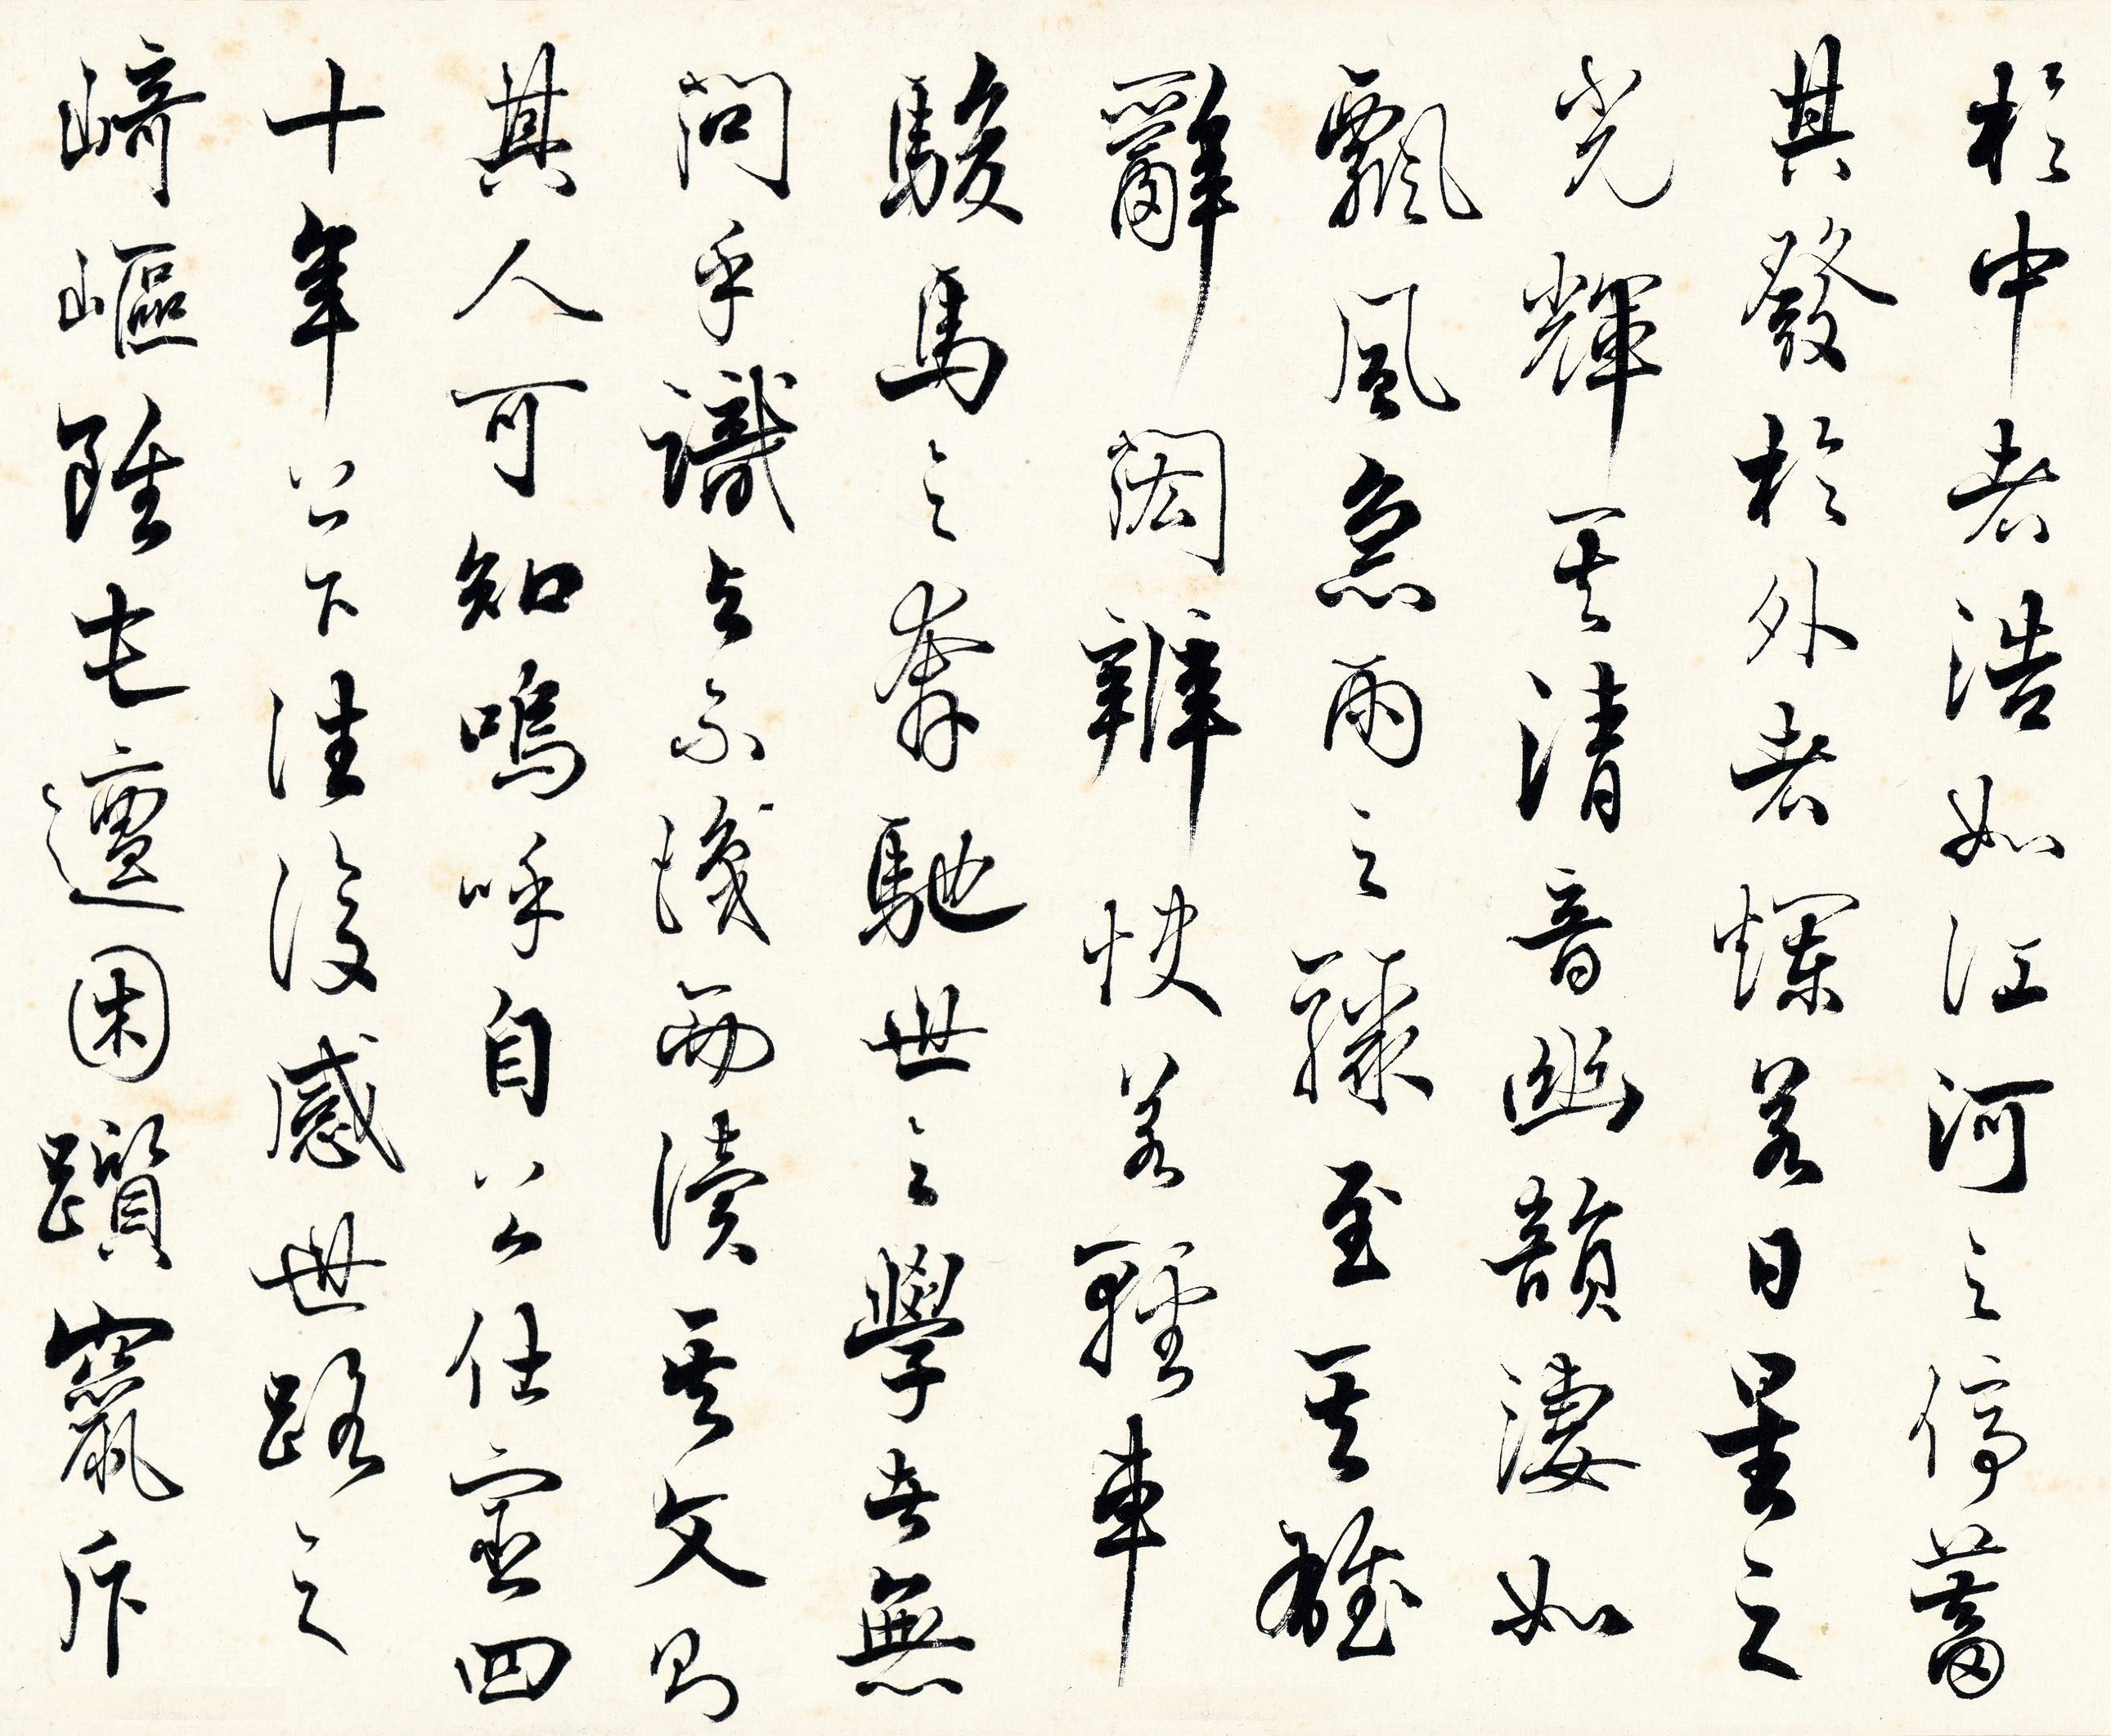 於中者浩如江河之停蓄
其發於外者爛若日星之
光輝其清音幽韻淒如
飄風急雨之驟至其雄
辭閎辨快若輕車
駿馬之奔馳世之學者無
問乎識與不識而讀其文則
其人可知嗚呼自公仕宦四
十年上下往復感世路之
崎嶇雖屯邅困躓竄斥